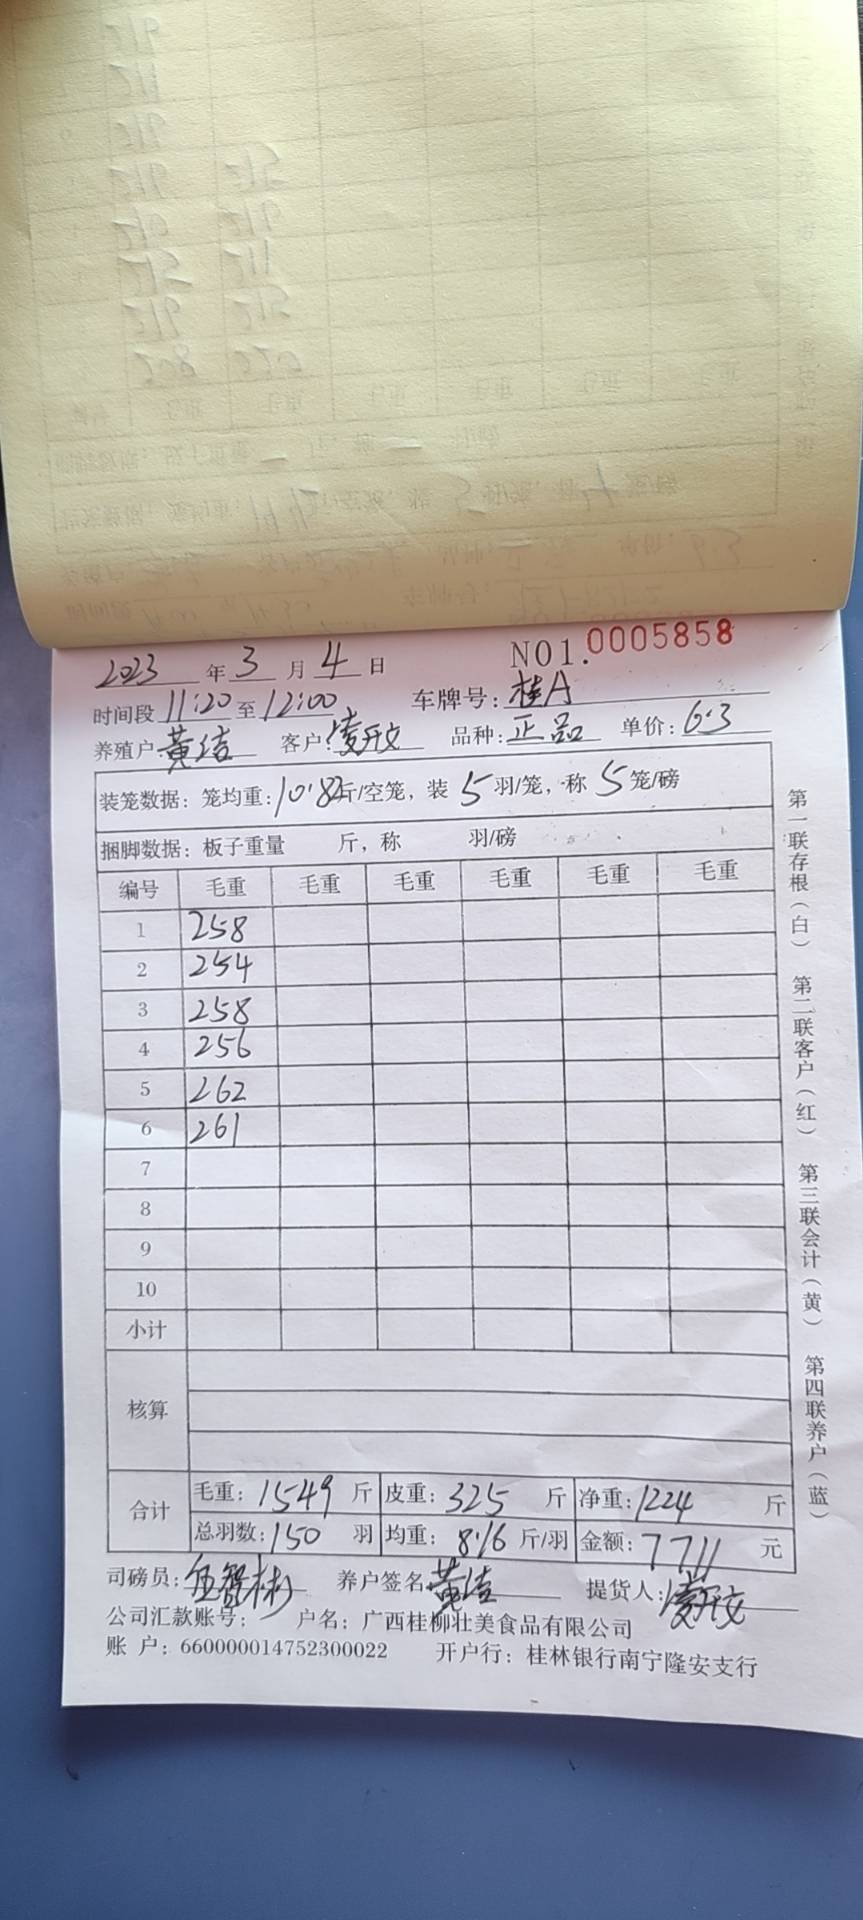 2023 年 3 月 4 日 NO1.0005858
时间段 11:20 至 12:00 车牌号: 桂A
养殖户 黄洁 客户: 凌开文 品种: 正品 单价: 6.3
装笼数据: 笼均重: 10.82斤/空笼, 装 5 羽/笼, 称 5 笼/磅
捆脚数据: 板子重量 斤, 称 羽/磅
编号 毛重 毛重 毛重 毛重 毛重 毛重
1 258
2 254
3 258
4 256
5 262
6 261
7
8
9
10
小计
核算
合计 毛重: 1549 斤 皮重: 325 斤 净重: 1224 斤
总羽数: 150 羽 均重: 8.16 斤/羽 金额: 7711 元
司磅员: 养户签名: 黄洁 提货人: 凌开文
公司汇款账号: 户名: 广西桂柳壮美食品有限公司
账 户: 660000014752300022 开户行: 桂林银行南宁隆安支行
第一联存根(白) 第二联客户(红) 第三联会计(黄) 第四联养户(蓝)